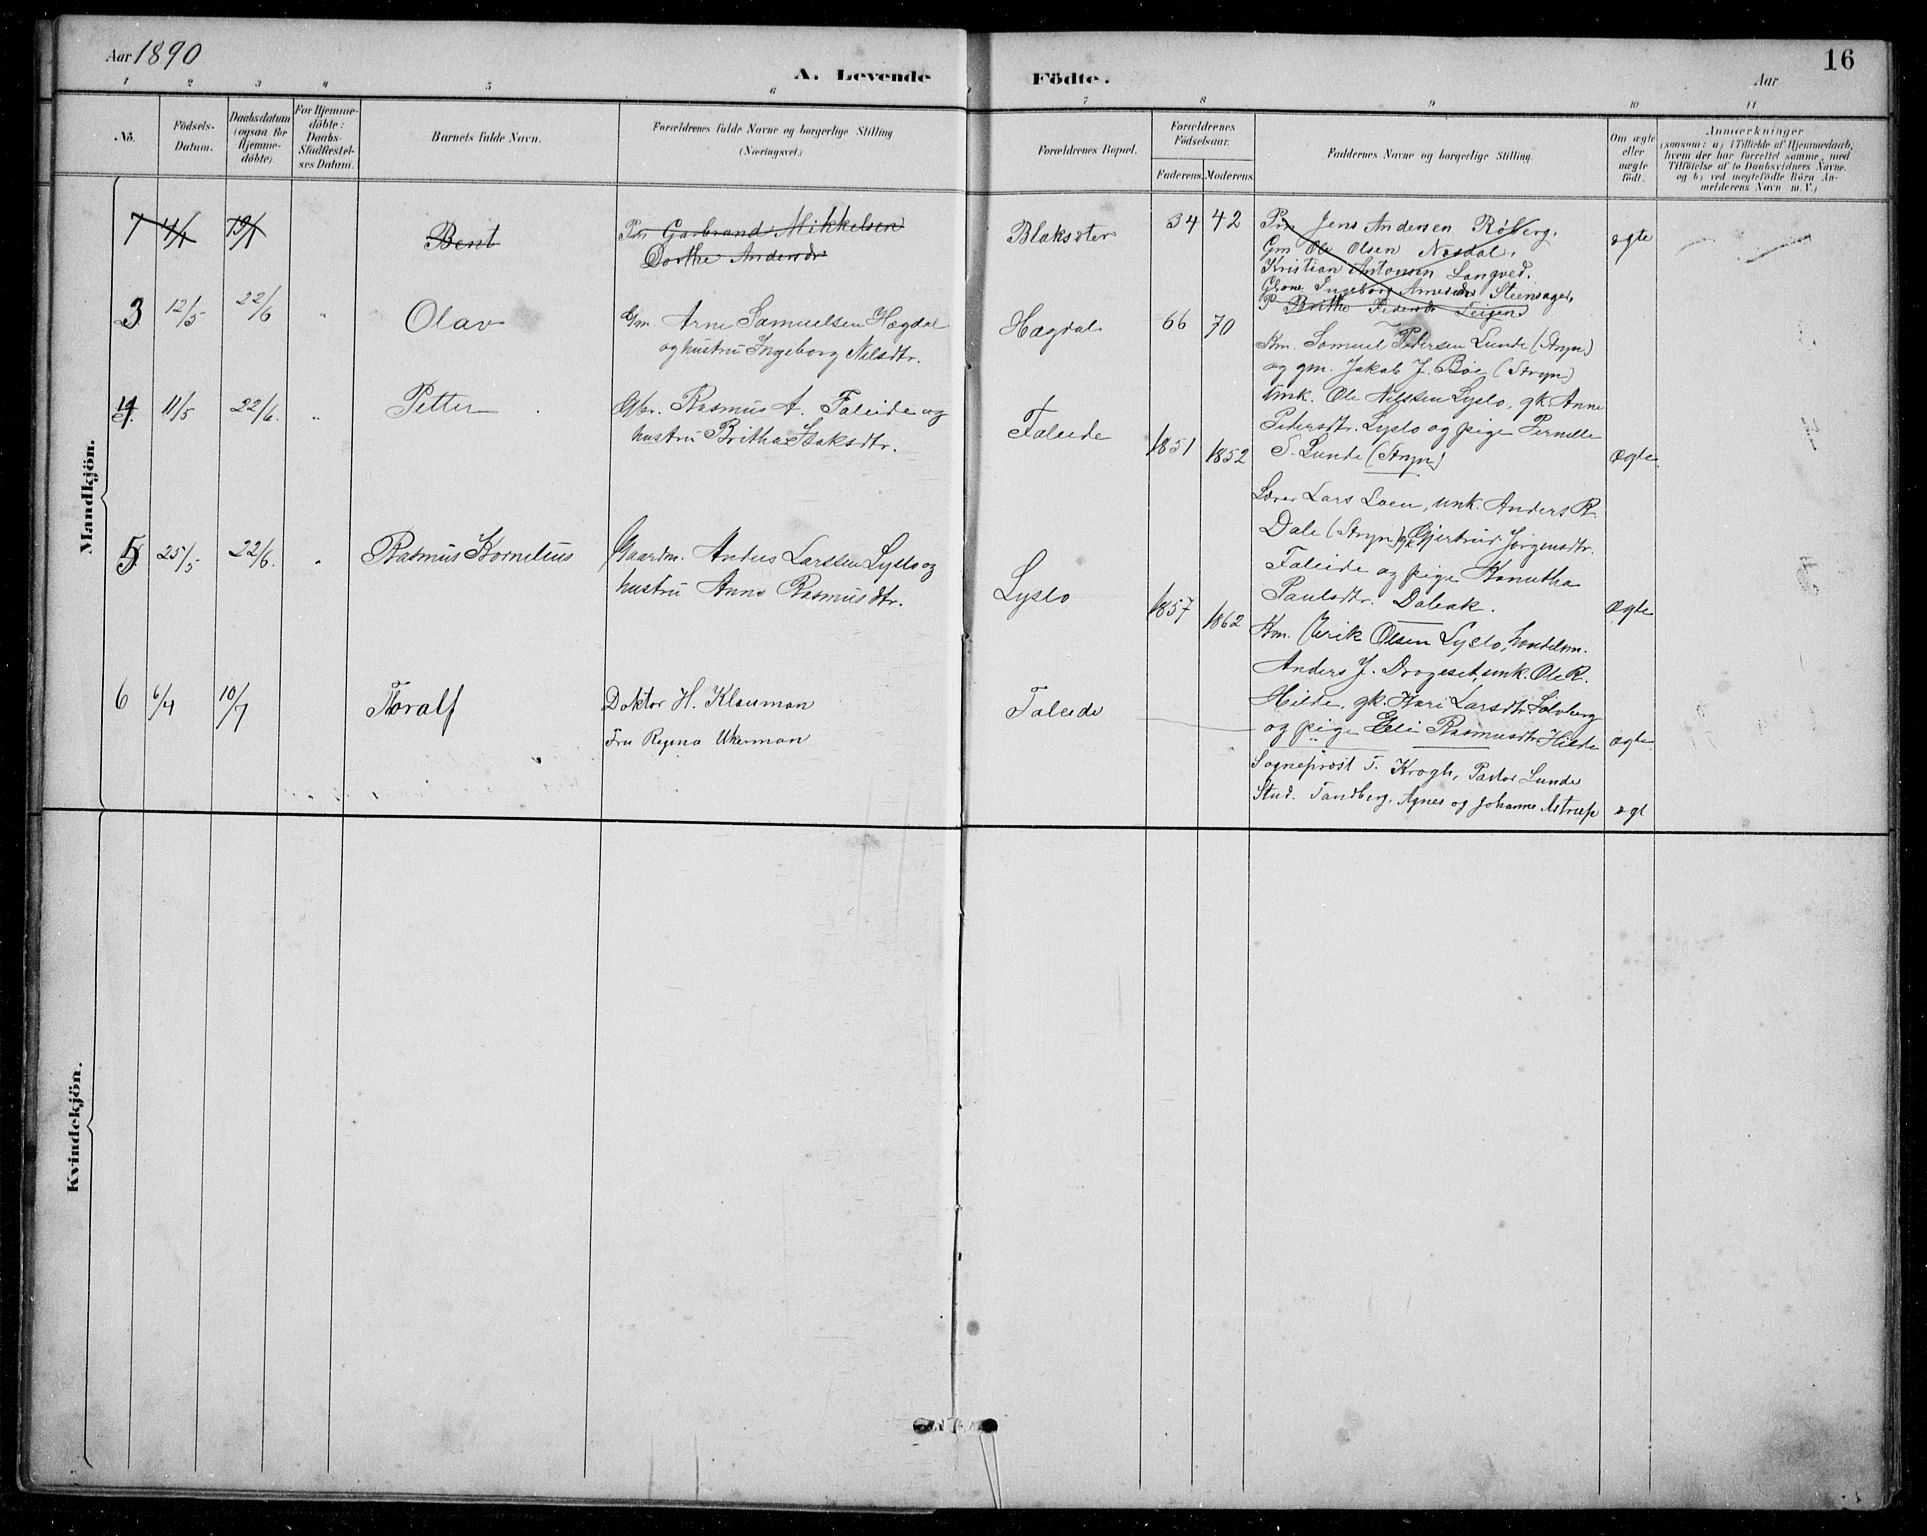 Aar 1890
A. Levende Födte.
Aar
16
1 2 3 4 5 6 7 8 9 10 11
No.
Födsels-Datum.
Daabsdatum (ogsaa for Hjemmedöbte).
For Hjemmedöbte: Daabs-Stadfæstelses Datum.
Barnets fulde Navn.
Forældrenes fulde Navne og borgerlige Stilling
(Næringsvei.)
Forældrenes Bopæl.
Forældrenes Födselsaar.
Faderens.
Moderens.
Faddernes Navne og borgerlige Stilling.
Om ægte eller uægte födt.
Anmærkninger
(saasom: a) i Tilfælde af Hjemmedaab,
hvem der har forrettet samme, med
Tilföielse af to Daabsvidners Navne.
og b) ved uægtefödte Börn An-
melderens Navn m. V.)
Mandkjön.
Bent
Garbrand Mikkelsen
Dorthe Andersdr
Blaksæter
34 42
Jens Andersen Röberg.
Gm Ole Olsen Nesdal.
Kristian Antonsen Langved.
Ingeborg Steensager
Brithe Pedersdr Teigen
ægte
3 12/5 22/6 "
Olav
Gm. Arne Samuelsen Hægdal
og hustru Ingeborg Nilsdtr.
Hægdal
66 70
Km. Samuel Pedersen Lunde (Stryn)
og gm. Jakob J. Böe (Stryn)
Umk. Ole Nilssen Lyslo, gk. Anne
Pedersdtr. Lyslo og pige Pernille
S. Lunde (Stryn)
Ægte
4 11/5 22/6. "
Petter
Gbr. Rasmus A. Faleide og
hustru Britha Isaksdtr.
Faleide
1851 1852
Lærer Lars Loen, umk. Anders R.
Dale (Stryn) gk. Gjertrud Jörgensdtr.
Faleide og pige Kanutha
Paulsdtr. Daleak.
Ægte
5 25/5 22/6.
Rasmus Kornelius
Gaardm. Anders Larssen Lyslo og
hustru Anne Rasmusdtr.
Lyslo
1857 1862
Km. Eirik Olsen Lyslo, handelsm.
Anders J. Drageset, umk. Ole R.
Hilde, gk. Kari Larsdtr. Solvberg
og pige Eli Rasmusdtr Hilde
ægte
6 6/4 10/7
Thoralf
Doktor H. Klouman
Fru Regina Ukerman
Faleide
Sogneprost T. Krogh, Pastor Lunde
Stud. Tandberg, Agnes og Johanne Astrup
ægt
Kvindekjön.